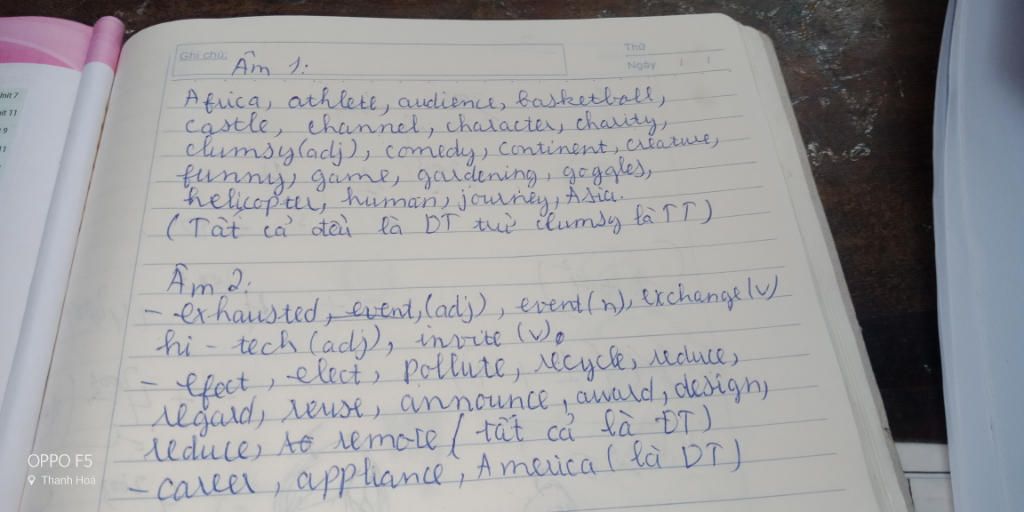 Unit 7
Unit 11
9
11
Ghi chú:
Âm 1:
Thứ
Ngày / /
Africa, athlete, audience, basketball,
castle, channel, character, charity,
clumsy(adj), comedy, continent, creature,
funny, game, gardening, goggles,
helicopter, human, journey, Asia.
(Tất cả đều là DT trừ clumsy là TT)
Âm 2:
- exhausted, event, (adj), event(n), exchange(v)
hi-tech (adj), invite (v).
- efect, elect, pollute, recycle, reduce,
regard, reuse, announce, award, design,
reduce, remote (tất cả là ĐT)
- career, appliance, America (là DT)
OPPO F5
Thanh Hoá